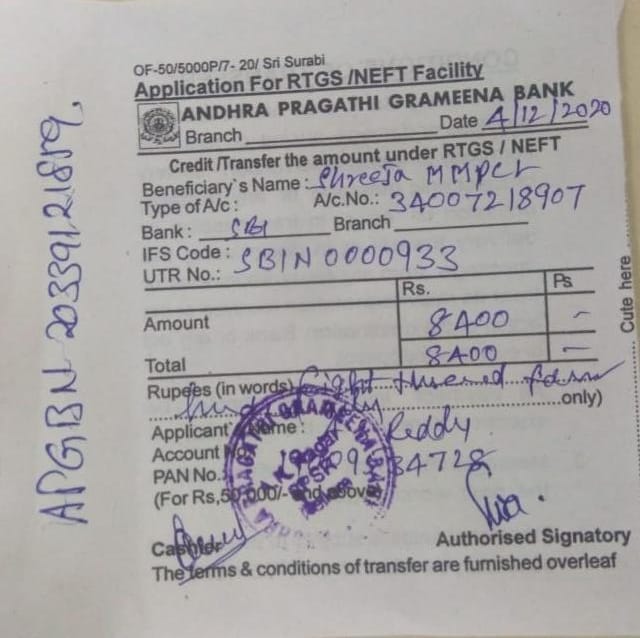 OF-50/5000P/7- 20/ Sri Surabi
Application For RTGS /NEFT Facility
ANDHRA PRAGATHI GRAMEENA BANK
Branch Date 4/12/2020
Credit /Transfer the amount under RTGS / NEFT
Beneficiary`s Name : Shreeja MMPCL
Type of A/c : A/c.No.: 34007218907
Bank : SBI Branch
IFS Code : SBIN0000933
UTR No.:
Rs. Ps
Amount 8400 -
Total 8400 -
Rupees (in words) Eight thousand four
hundred only only)
Applicant Name : Reddy
Account
PAN No.
(For Rs,50,000/- and above)
Cashier Authorised Signatory
The terms & conditions of transfer are furnished overleaf
APGBN 20339121889
Cute here